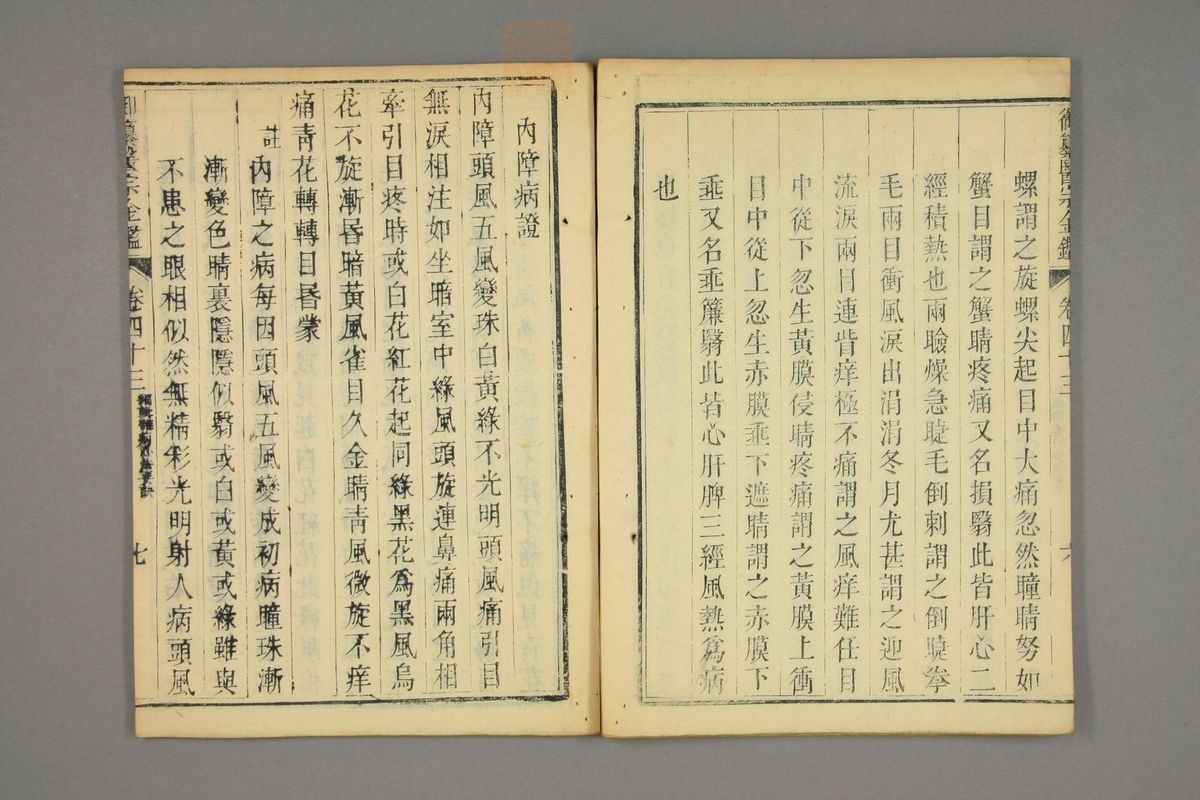 御纂醫宗金鑑 卷四十三 六
螺謂之旋螺尖起目中大痛忽然瞳睛努如
蟹目謂之蟹睛疼痛又名損翳此皆肝心二
經積熱也兩瞼燥急睫毛倒刺謂之倒睫拳
毛兩目衝風淚出涓涓冬月尤甚謂之迎風
流淚兩目連眥痒極不痛謂之風痒難任目
中從下忽生黃膜侵睛疼痛謂之黃膜上衝
目中從上忽生赤膜垂下遮睛謂之赤膜下
垂又名垂簾翳此皆心肝脾三經風熱爲病
也
內障病證
內障頭風五風變珠白黃綠不光明頭風痛引目
無淚相注如坐暗室中綠風頭旋連鼻痛兩角相
牽引目疼時或白花紅花起同綠黑花爲黑風烏
花不旋漸昏暗黃風雀目久金睛青風微旋不痒
痛青花轉轉目昏蒙
註 內障之病每因頭風五風變成初病瞳珠漸
漸變色睛裏隱隱似翳或白或黃或綠雖與
不患之眼相似然無精彩光明射人病頭風
御纂醫宗金鑑 卷四十三 編輯雜病心法要訣 七